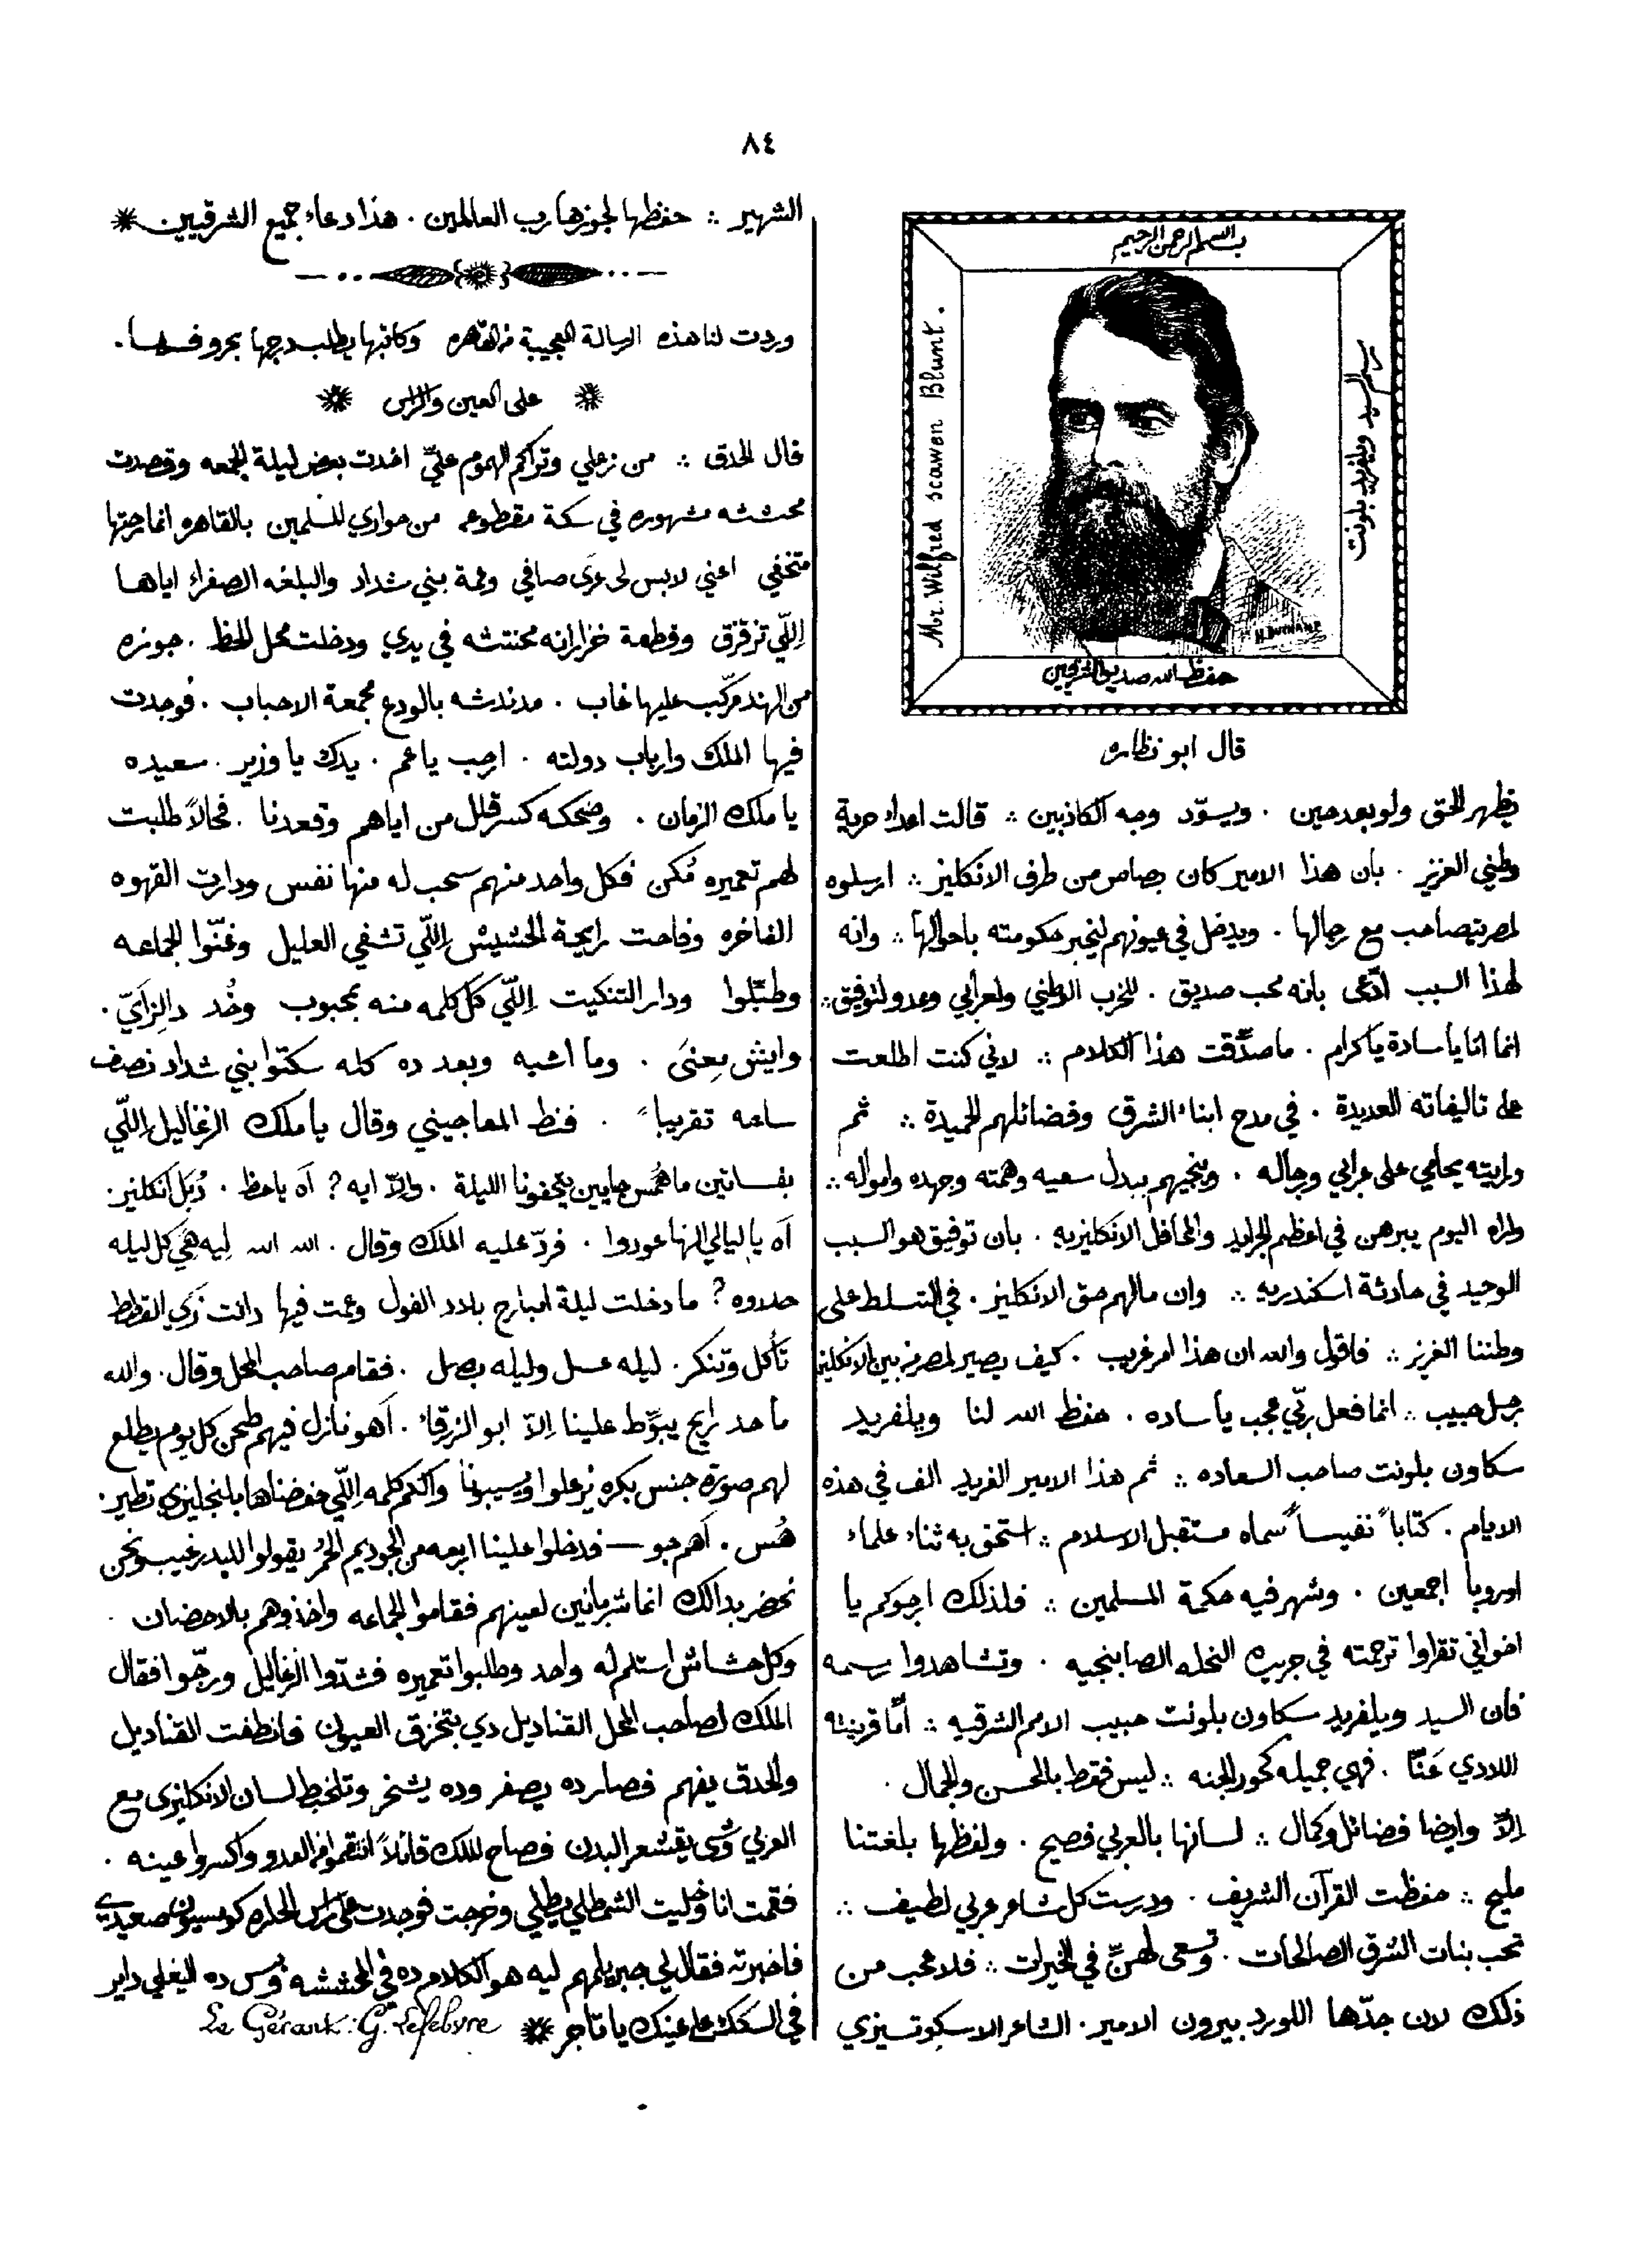 ٨٤
بسم الله الرحمن الرحيم
Mr. Wilfred scawen Blunt.
رسم السيد ويلفريد بلونت
حفظ الله صديق الشرقيين
قال ابو نظاره
يظهر الحق ولو بعد حين . ويسوّد وجه الكاذبين ؞ قالت اعداء حرية
وطني العزيز . بان هذا الامير كان بصاص من طرف الانكليز ؞ ارسلوه
لمصر يتصاحب مع رجالها . ويدخل في عيونهم ليخبر حكومته باحوالها ؞ وانه
لهذا السبب ادّعى بانه محب صديق . للحزب الوطني ولعرابي وعدو لتوفيق ؞
انما انا يا سادة يا كرام . ما صدّقت هذا الكلام ؞ لاني كنت اطلعت
على تاليفاته العديدة . في مدح ابناء الشرق وفضائلهم الحميدة ؞ ثم
ورايته يحامي على عرابي ورجاله . وينجيهم ببدل سعيه وهمته وجهده وامواله ؞
واراه اليوم يبرهن في اعظم الجرايد والمحافل الانكليزيه . بان توفيق هو السبب
الوحيد في حادثة اسكندريه ؞ وان مالهم حق الانكليز . في التسلط على
وطننا العزيز ؞ فاقول والله ان هذا امر غريب . كيف يصير لمصر من بين الانكليز
رجل حبيب ؞ انما فعل ربّي عجب يا ساده . حفظ الله لنا ويلفريد
سكاون بلونت صاحب السعاده ؞ ثم هذا الامير الفريد الف في هذه
الايام . كتاباً نفيساً سماه مستقبل الاسلام ؞ استحق به ثناء علماء
اوروبا اجمعين . وشهر فيه حكمة المسلمين ؞ فلذلك ارجوكم يا
اخواني تقراوا ترجمته في جريدة النحله الصابنجيه . وتشاهدوا رسمه
فان السيد ويلفريد سكاون بلونت حبيب الامم الشرقيه ؞ امّا قرينته
اللادي عنّا . فهي جميله كحور الجنه ؞ ليس فقط بالحسن والجمال .
الاّ وايضا فضائل وكمال ؞ لسانها بالعربي فصيح . ولفظها بلغتنا
مليح ؞ حفظت القرآن الشريف . ودرست كل شاعر عربي لطيف ؞
تحب بنات الشرق الصالحات . وتسعى لهنّ في الخيرات ؞ فلا عجب من
ذلك لان جدّها اللورد بيرون الامير . الشاعر الاسكوتسيزي
الشهير ؞ حفظها لجوزها رب العالمين . هذا دعاء جميع الشرقيين
وردت لنا هذه الرسالة العجيبة من القاهره وكاتبها يطلب درجها بحروفها .
على العين والراس
قال الحدق ؞ من زعلي وتراكم الهموم عليّ اخدت بعض ليلة الجمعه وقصدت
محششه مشهوره في سكة مقطوعه من حواري المسلمين بالقاهره انما رحتها
متخفي اعني لابس لى عرى صافي وعمة بني شداد والبلغه الصفراء اياها
اللّي تزقزق وقطعة خزرانه محنتشه في يدي ودخلت محل الحظ . جوزه
من الهند مركّب عليها غاب . مدندشه بالودع مجمعة الاحباب . فوجدت
فيها الملك وارباب دولته . ارحب يا عم . يدك يا وزير . سعيده
يا ملك الزمان . وضحكه كسر قلل من اياهم وقعدنا . فحالاً طلبت
لهم تعميره تُكن فكل واحد منهم سحب له منها نفس ودارت القهوه
الفاخره وفاحت رايحة الحشيش اللّي تشفي العليل وغنّوا الجماعه
وطبّلوا ودار التنكيت اللّي كل كلمه منه بمحبوب وخُد دالزايّ .
وايش معنى . وما اشبه وبعد ده كله سكتوا بني شداد نصف
ساعه تقريباً . فنط المعاجيني وقال يا ملك الزغاليل اللّي
بفساتين ما همُّس جايين يتحفونا الليلة . والاّ ايه ? آه ياحظ . دُبَل انكليز .
آه يا ليالي الهنا عودوا . فردّ عليه الملك وقال . الله الله ليه هيّ كل ليله
حدوه ? ما دخلت ليلة امبارح بلاد الفول وعمت فيها دانت زي القطط
تأكل وتنكر . ليله عسل وليله بصل . فقام صاحب المحل وقال . والله
ما حد رايح يبوّظ علينا الاّ ابو الزرقاء . اهو نازل فيهم طحن كل يوم يطلع
لهم صورة جنس بكره يزعلوا ويسيبونا والكم كلمه اللّي حفضناها بلنجليزي تطير .
هُس . اهم جو — فدخلوا علينا اربعه من الجوديم الحُمر يقولوا الليدر غيب ونحن
نحضر بدالك انما شربانين لعينهم فقاموا الجماعه واخذوهم بالاحضان .
وكل حشاش استلم له واحد وطلبوا تعميره فشدّوا الزغاليل ورجّوا فقال
الملك لصاحب المحل القناديل دي بتخزق العيون فانطفت القناديل
والحدق يفهم فصار ده يصفر وده يشخر وتلخبط لسان الانكليزى مع
العربي وشى يقشعر البدن فصاح الملك قائلاً انتقموا من العدو واكسروا عينه .
فقمت انا وخليت وخرجت فوجدت على راس الحاره كونسيون صعيدي
فاخبرته فقال لي جبر يلمهم ليه هو الكلام ده في المحششه وبس ده البغلي داير
في السكك على عينك يا تاجر
Le Gérant: G. Lefebvre